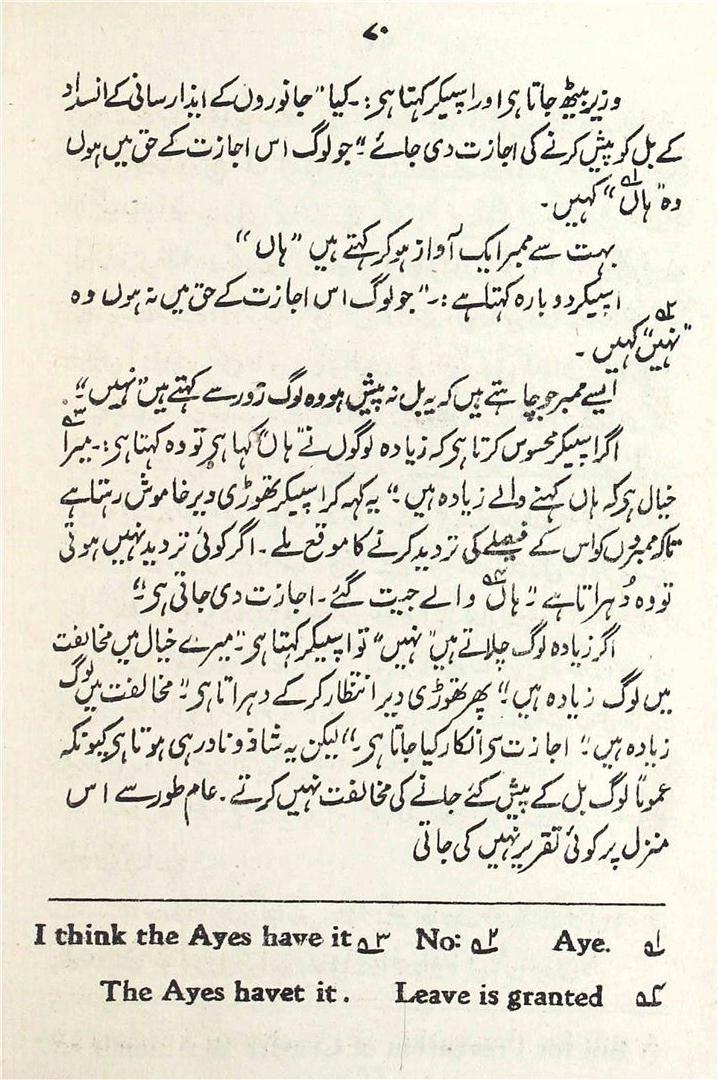 ۷۰
وزیر بیٹھ جاتا ہی اور اسپیکر کہتا ہی:۔ کیا "جانوروں کے ایذا رسانی کے انسداد
کے بل کو پیش کرنے کی اجازت دی جائے"۔ جو لوگ اس اجازت کے حق میں ہوں
وہ "ہاں۱؎" کہیں۔
بہت سے ممبر ایک آواز ہو کر کہتے ہیں "ہاں"
اسپیکر دوبارہ کہتا ہے:۔ "جو لوگ اس اجازت کے حق میں نہ ہوں وہ
"نہیں۲؎" کہیں۔
ایسے ممبر جو چاہتے ہیں کہ یہ بل نہ پیش ہو وہ لوگ زور سے کہتے ہیں "نہیں"۔
اگر اسپیکر محسوس کرتا ہی کہ زیادہ لوگوں نے "ہاں" کہا ہی تو وہ کہتا ہی:۔ میرا۳؎
خیال ہی کہ ہاں کہنے والے زیادہ ہیں۔" یہ کہہ کر اسپیکر تھوڑی دیر خاموش رہتا ہے
تاکہ ممبروں کو اس کے فیصلے کی تردید کرنے کا موقع ملے۔ اگر کوئی تردید نہیں ہوتی
تو وہ دُہراتا ہے "ہاں۴؎ والے جیت گئے۔ اجازت دی جاتی ہی"۔
اگر زیادہ لوگ چلاتے ہیں "نہیں" تو اسپیکر کہتا ہی "میرے خیال میں مخالفت
میں لوگ زیادہ ہیں"۔ پھر تھوڑی دیر انتظار کر کے دہراتا ہی۔ "مخالفت میں لوگ
زیادہ ہیں"۔ اجازت سی انکار کیا جاتا ہی۔" لیکن یہ شاذ و نادر ہی ہوتا ہی کیونکہ
عموماً لوگ بل کے پیش کئے جانے کی مخالفت نہیں کرتے۔ عام طور سے اس
منزل پر کوئی تقریر نہیں کی جاتی
۱؎ Aye. ۲؎ No: ۳؎ I think the Ayes have it
۴؎ Leave is granted The Ayes havet it.